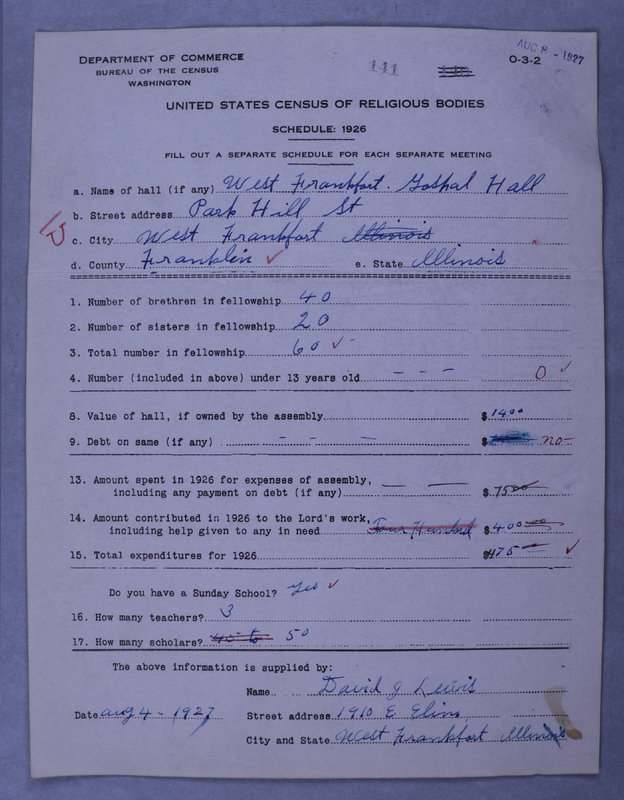 DEPARTMENT OF COMMERCE
BUREAU OF THE CENSUS
WASHINGTON
141
AUG 8 - 1927
O-3-2
UNITED STATES CENSUS OF RELIGIOUS BODIES
SCHEDULE: 1926
FILL OUT A SEPARATE SCHEDULE FOR EACH SEPARATE MEETING
a. Name of hall (if any) West Frankfort. Goshal Hall
b. Street address Park Hill St
c. City West Frankfort Illinois
d. County Franklin ✓ e. State Illinois
1. Number of brethren in fellowship 40
2. Number of sisters in fellowship 20
3. Total number in fellowship 60 ✓
4. Number (included in above) under 13 years old - - - 0 ✓
8. Value of hall, if owned by the assembly $ 1400
9. Debt on same (if any) - - - $ no-
13. Amount spent in 1926 for expenses of assembly,
including any payment on debt (if any) $ 75 00
14. Amount contributed in 1926 to the Lord's work,
including help given to any in need Four Hundred $ 400 00
15. Total expenditures for 1926 $ 475 ✓
Do you have a Sunday School? Yes ✓
16. How many teachers? 3
17. How many scholars? 40 to 50
The above information is supplied by:
Name David J Lewis
Date Aug 4 - 1927 Street address 1910 E Elm
City and State West Frankfort Illinois